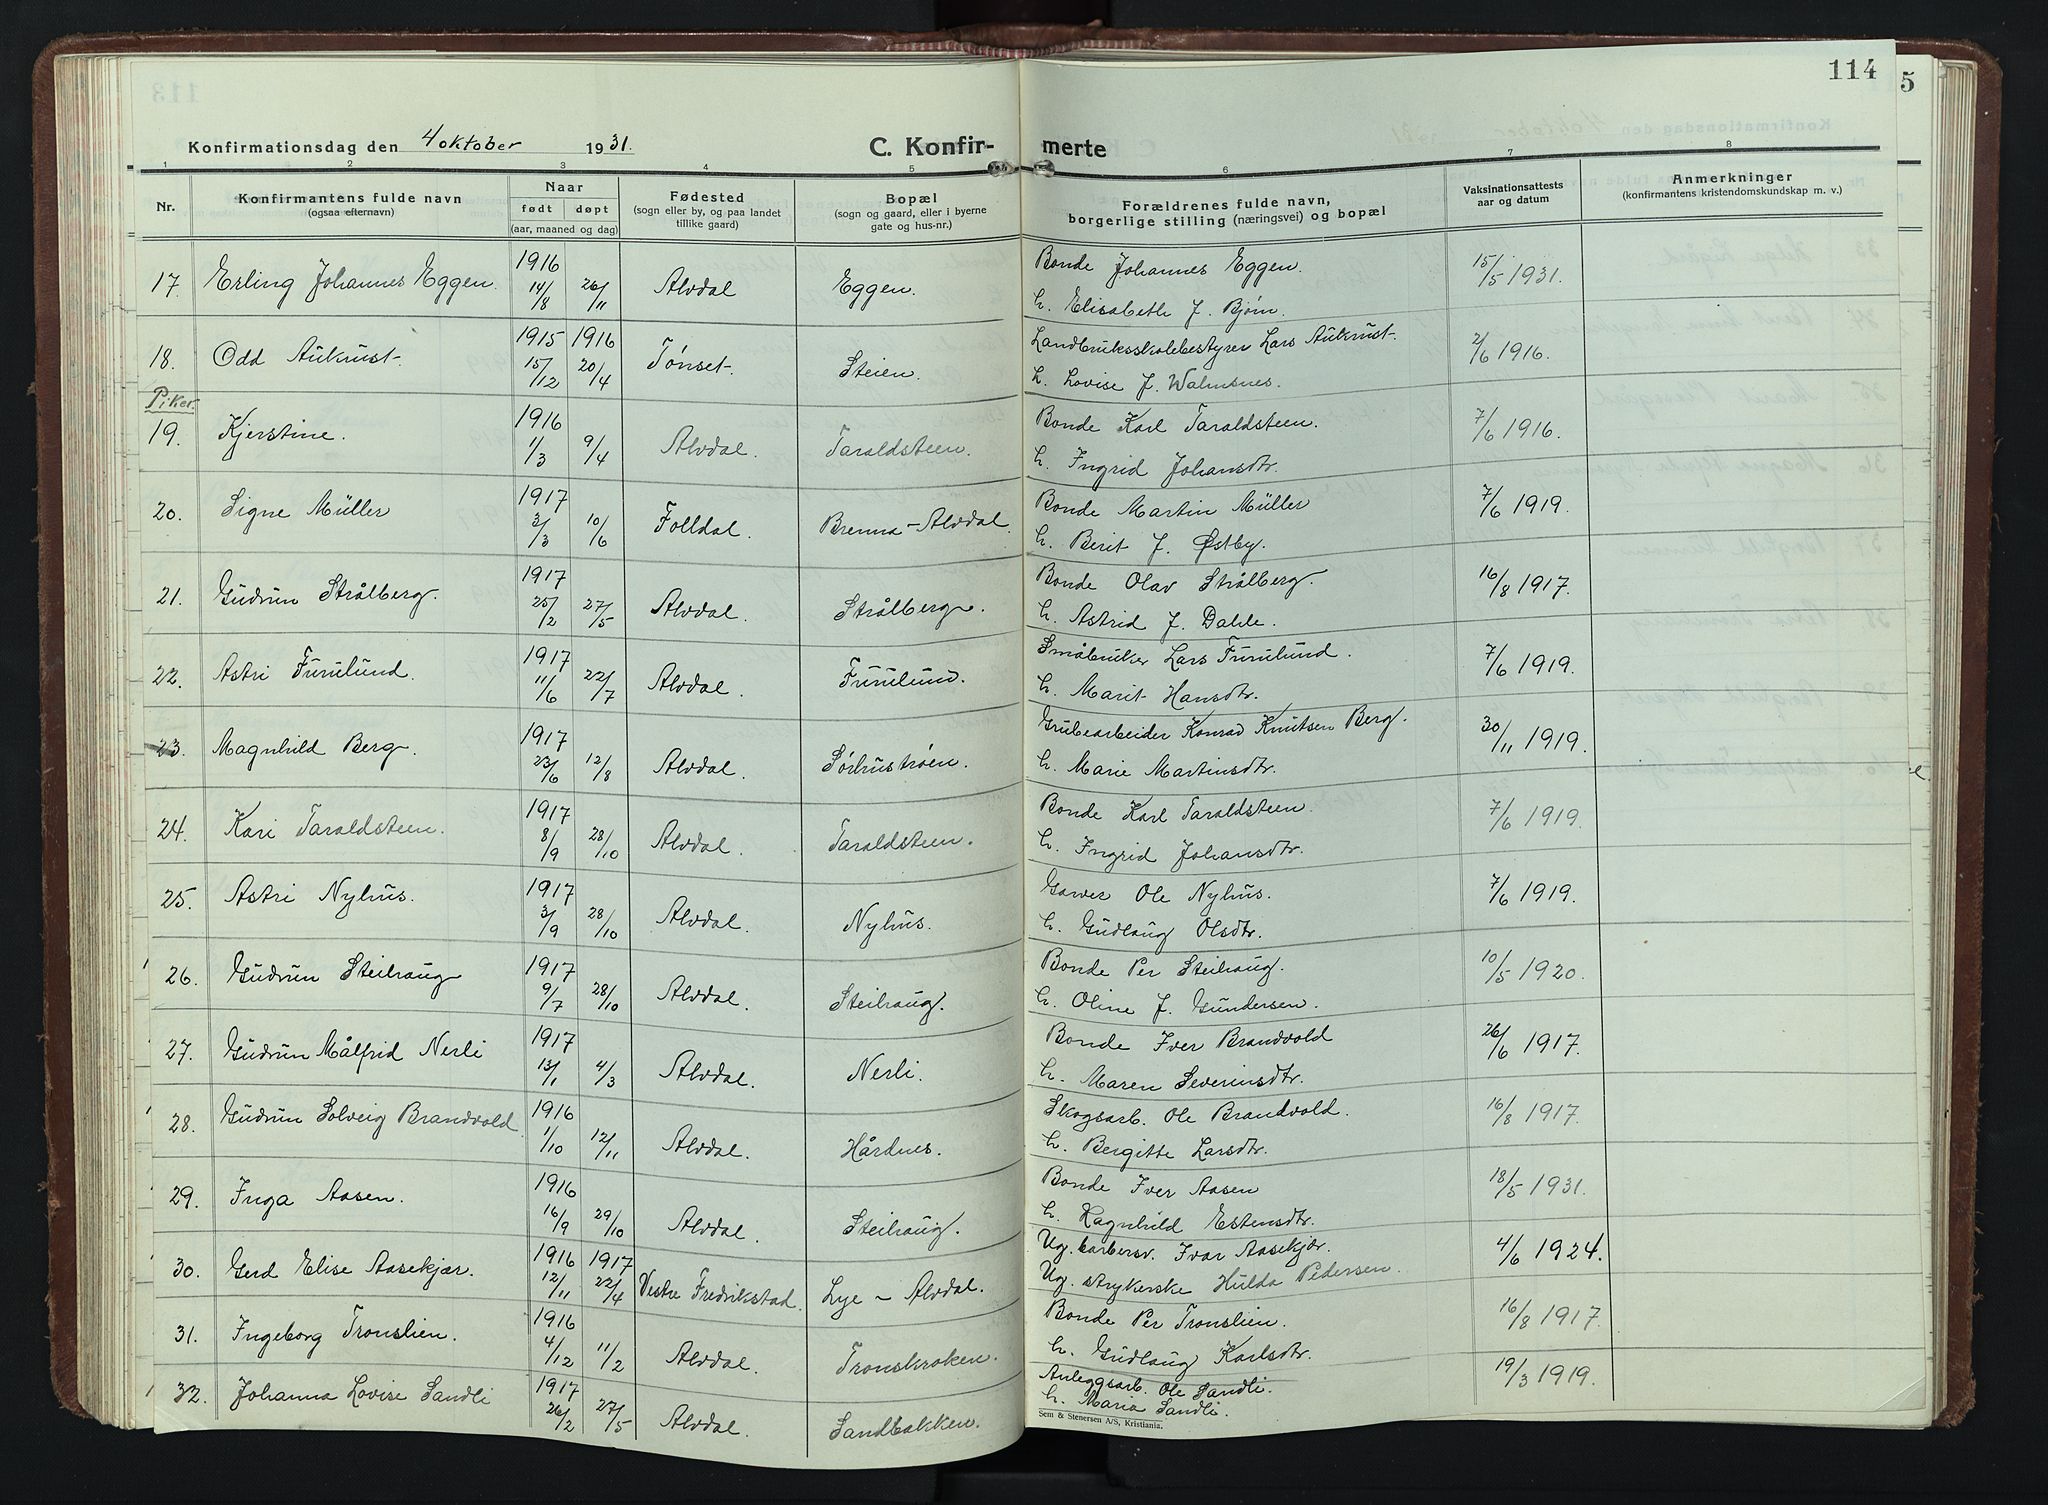 114
5
Konfirmationsdag den 4 oktober 1931.
C. Konfir- merte
1 2 3 4 5 6 7 8
Nr.
Konfirmantens fulde navn
(ogsaa efternavn)
Naar
født døpt
(aar, maaned og dag)
Fødested
(sogn eller by, og paa landet
tillike gaard)
Bopæl
(sogn og gaard, eller i byerne
gate og hus-nr.)
Forældrenes fulde navn,
borgerlige stilling (næringsvei) og bopæl
Vaksinationsattests
aar og datum
Anmerkninger
(konfirmantens kristendomskundskap m. v.)
17. Erling Johannes Eggen. 1916 14/8 26/11 Alvdal Eggen. Bonde Johannes Eggen. 15/5 1931.
h. Elisabeth J. Bjørn.
18. Odd Aukrust. 1915 15/12 1916 20/4 Tønset. Steien. Landbruksskolebestyrer Lars Aukrust. 2/6 1916.
h. Lovise J. Walmsnes.
Piker.
19. Kjerstine. 1916 1/3 9/4 Alvdal. Taraldsteen. Bonde Karl Taraldsteen. 7/6 1916.
h. Ingrid Johansdtr.
20. Signe Müller 1917 2/3 10/6 Folldal. Brenna - Alvdal. Bonde Martin Müller 7/6 1919.
h. Berit J. Østby.
21. Gudrun Strålberg. 1917 25/2 27/5 Alvdal. Strålberg. Bonde Olav Strålberg. 16/8 1917.
h. Astrid J. Dahle.
22. Astri Furulund. 1917 11/6 22/7 Alvdal. Furulund. Småbruker Lars Furulund. 7/6 1919.
h. Marit Hansdtr.
23. Magnhild Berg. 1917 23/6 12/8 Alvdal. Sørhustrøen. Grubearbeider Konrad Knutsen Berg. 30/11 1919.
h. Marie Martinsdtr.
24. Kari Taraldsteen. 1917 8/9 28/10 Alvdal. Taraldsteen. Bonde Karl Taraldsteen. 7/6 1919.
h. Ingrid Johansdtr.
25. Astri Nyhus. 1917 3/9 28/10 Alvdal. Nyhus. Garver Ole Nyhus. 7/6 1919.
h. Gudlaug Olsdtr.
26. Gudrun Steihaug 1917 9/7 28/10 Alvdal. Steihaug. Bonde Per Steihaug. 10/5 1920.
h. Oline J. Gundersen.
27. Gudrun Målfrid Nerli 1917 13/1 4/3 Alvdal. Nerli. Bonde Iver Brandvold 26/6 1917.
h. Maren Severinsdtr.
28. Gudrun Solveig Brandvold. 1916 1/10 12/11 Alvdal. Hårdnes. Skogsarb. Ole Brandvold. 16/8 1917.
h. Bergitte Larsdtr.
29. Inga Aasen. 1916 16/9 29/10 Alvdal. Steihaug. Bonde Iver Aasen 18/5 1931.
h. Ragnhild Estensdtr.
30. Gerd Elise Aasekjær. 1916 12/11 1917 22/4 Vestre Fredrikstad. Lye - Alvdal. Ug. barbersv. Ivar Aasekjær. 4/6 1924.
Ug. strykerske Hulda Pedersen.
31. Ingeborg Tronslien. 1916 4/12 11/2 Alvdal. Tronskroken. Bonde Per Tronslien. 16/8 1917.
h. Gudlaug Karlsdtr.
32. Johanna Lovise Sandli 1917 26/2 27/5 Alvdal. Sandbakken. Anleggsarb. Ole Sandli. 19/3 1919.
h. Maria Sandli.
Sem & Stenersen A/S, Kristiania.